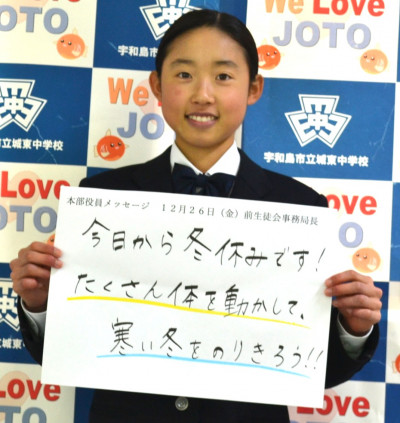 We Love
JOTO
宇和島市立城東中学校
We Love
JOTO
宇和島市立城東中学校
We Love
本部役員メッセージ　１２月２６日（金）前生徒会事務局長
今日から冬休みです！
たくさん体を動かして、
寒い冬をのりきろう!!
We Love
JOTO